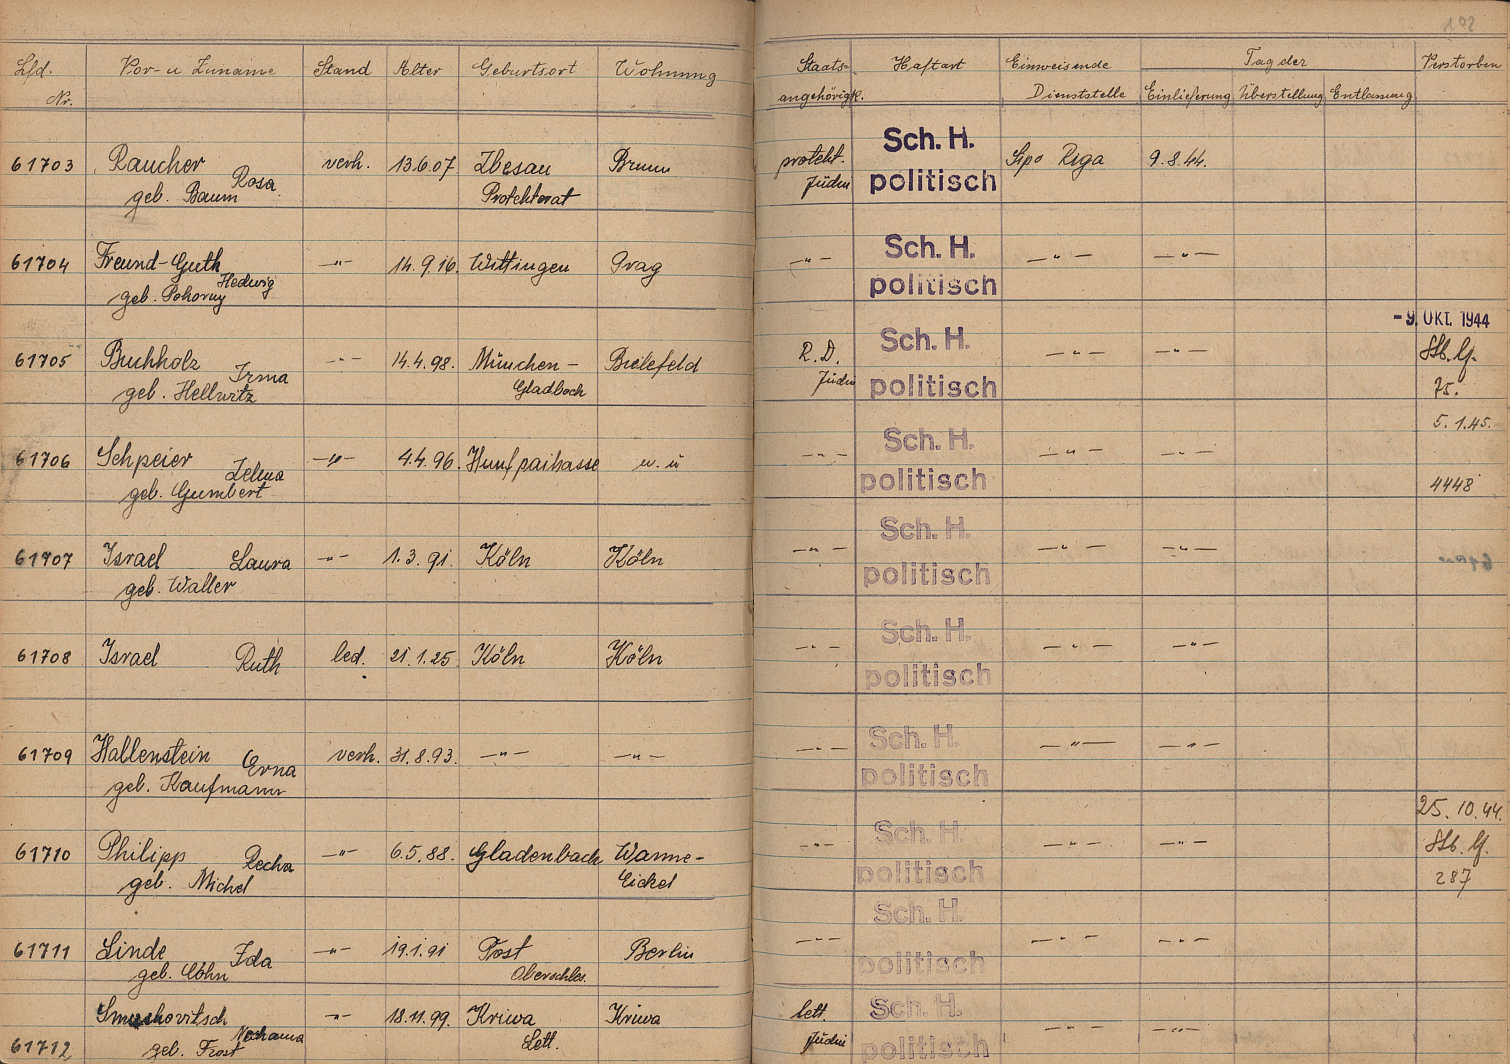 102
Lfd. Nr. Vor- u Zuname Stand Alter Geburtsort Wohnung Staats-angehörigk. Haftart Einweisende Dienststelle Tag der Einlieferung Überstellung Entlassung Verstorben
61703 Raucher Rosa verh. 13.6.07 Brunn protekt. Sch. H. Sipo Riga 9.8.44.
geb. Baum Protektorat Jüdin politisch
61704 Freund-Guth Hedwig -"- 14.9.16. Wittingen Prag -"- Sch. H. -"- -"-
geb. Pokorny politisch
- 9. OKT. 1944
61705 Buchholz Irma -"- 14.4.98. München- Bielefeld R.D. Sch. H. -"- -"- Stb. lf.
geb. Hellwitz Gladbach Jüdin politisch 75.
5.1.45.
61706 Schpeier -"- 4.4.96. w. u -"- Sch. H. -"- -"-
geb. Gumbert politisch 4448
61707 Israel Laura -"- 1.3.91. Köln Köln -"- Sch. H. -"- -"-
geb. Waller politisch
61708 Israel Ruth led. 21.1.25 Köln Köln -"- Sch. H. -"- -"-
politisch
61709 Hallenstein Erna verh. 31.8.93. -"- -"- -"- Sch. H. -"- -"-
geb. Kaufmann politisch
25.10.44.
61710 Philipp Recha -"- 6.5.88. Gladenbach Wanne- -"- Sch. H. -"- -"- Stb. lf.
geb. Michel Eickel politisch 287
61711 Linde Ida -"- 19.1.91 Tost Berlin -"- Sch. H. -"- -"-
geb. Cohn Oberschles. politisch
61712 Nechama -"- 18.11.99. Kriwa Kriwa lett. Sch. H. -"- -"-
geb. Frost Lett. Jüdin politisch